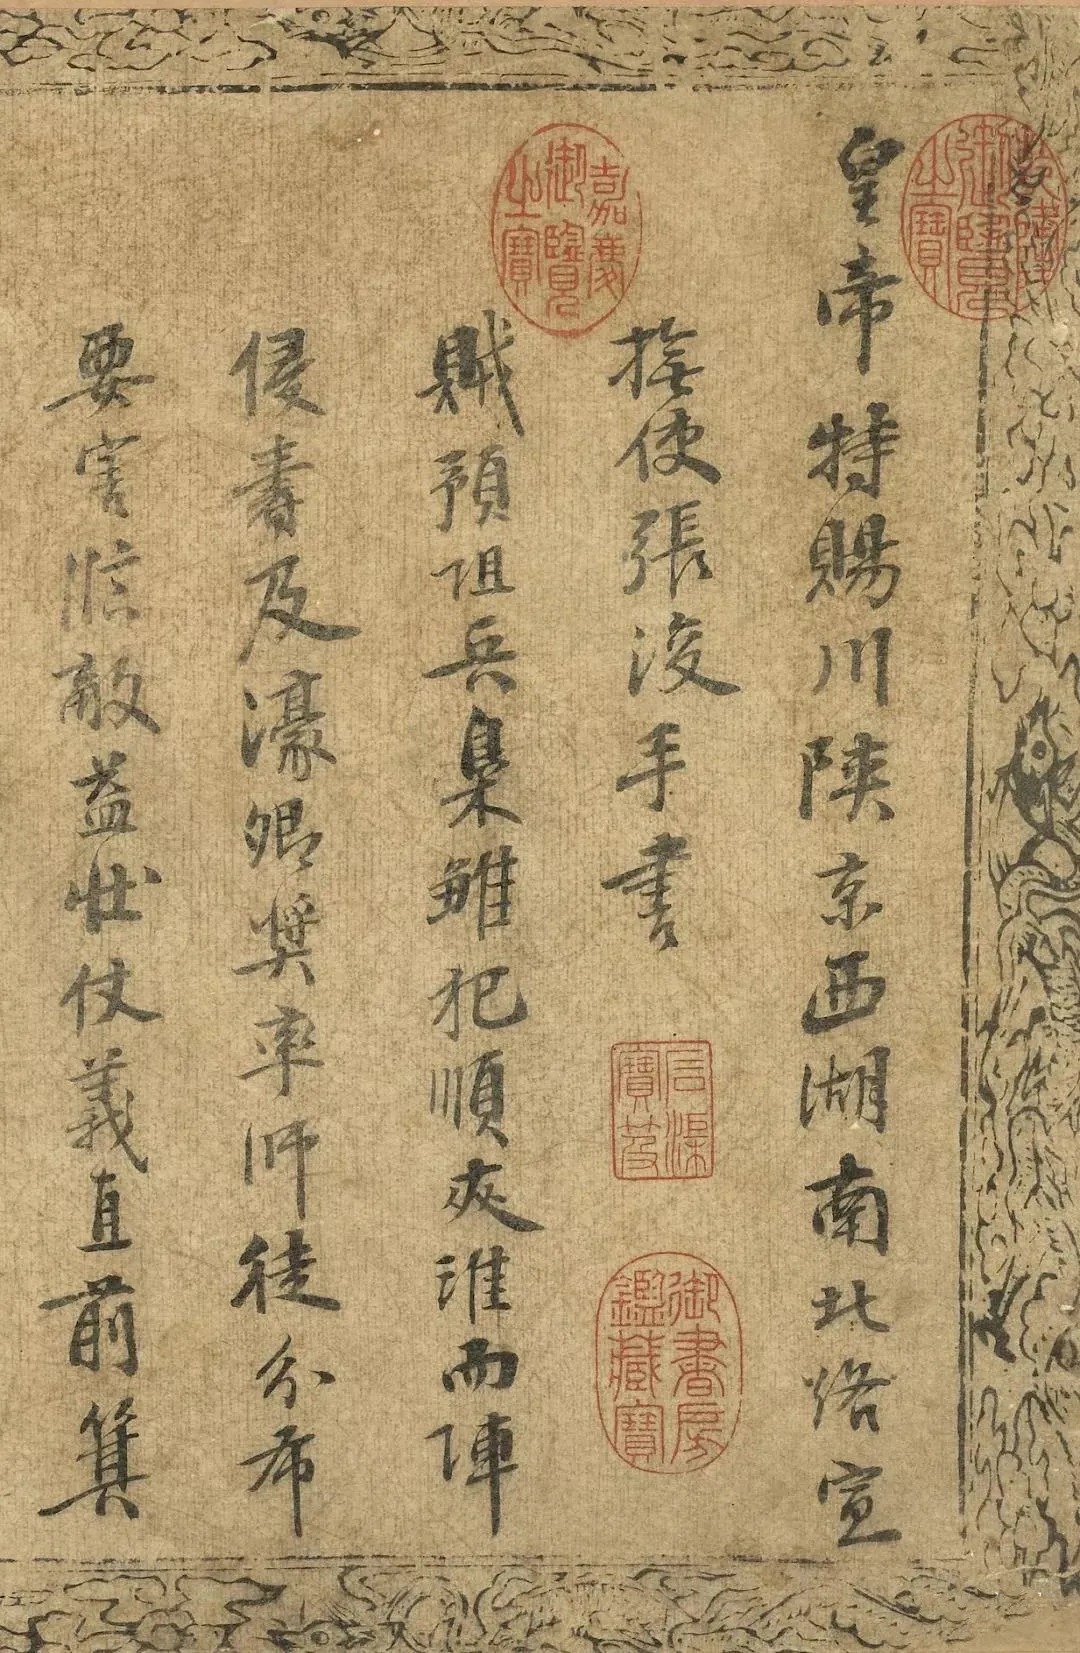 乾隆御覽之寶
皇帝特賜川陝京西湖南北路宣
嘉慶御覽之寶
撫使張浚手書
石渠寶笈
御書房鑑藏寶
賊預阻兵梟雛犯順夾淮而陣
侵壽及濠卿奬率師徒分布
要害臨敵益壯仗義直前箕